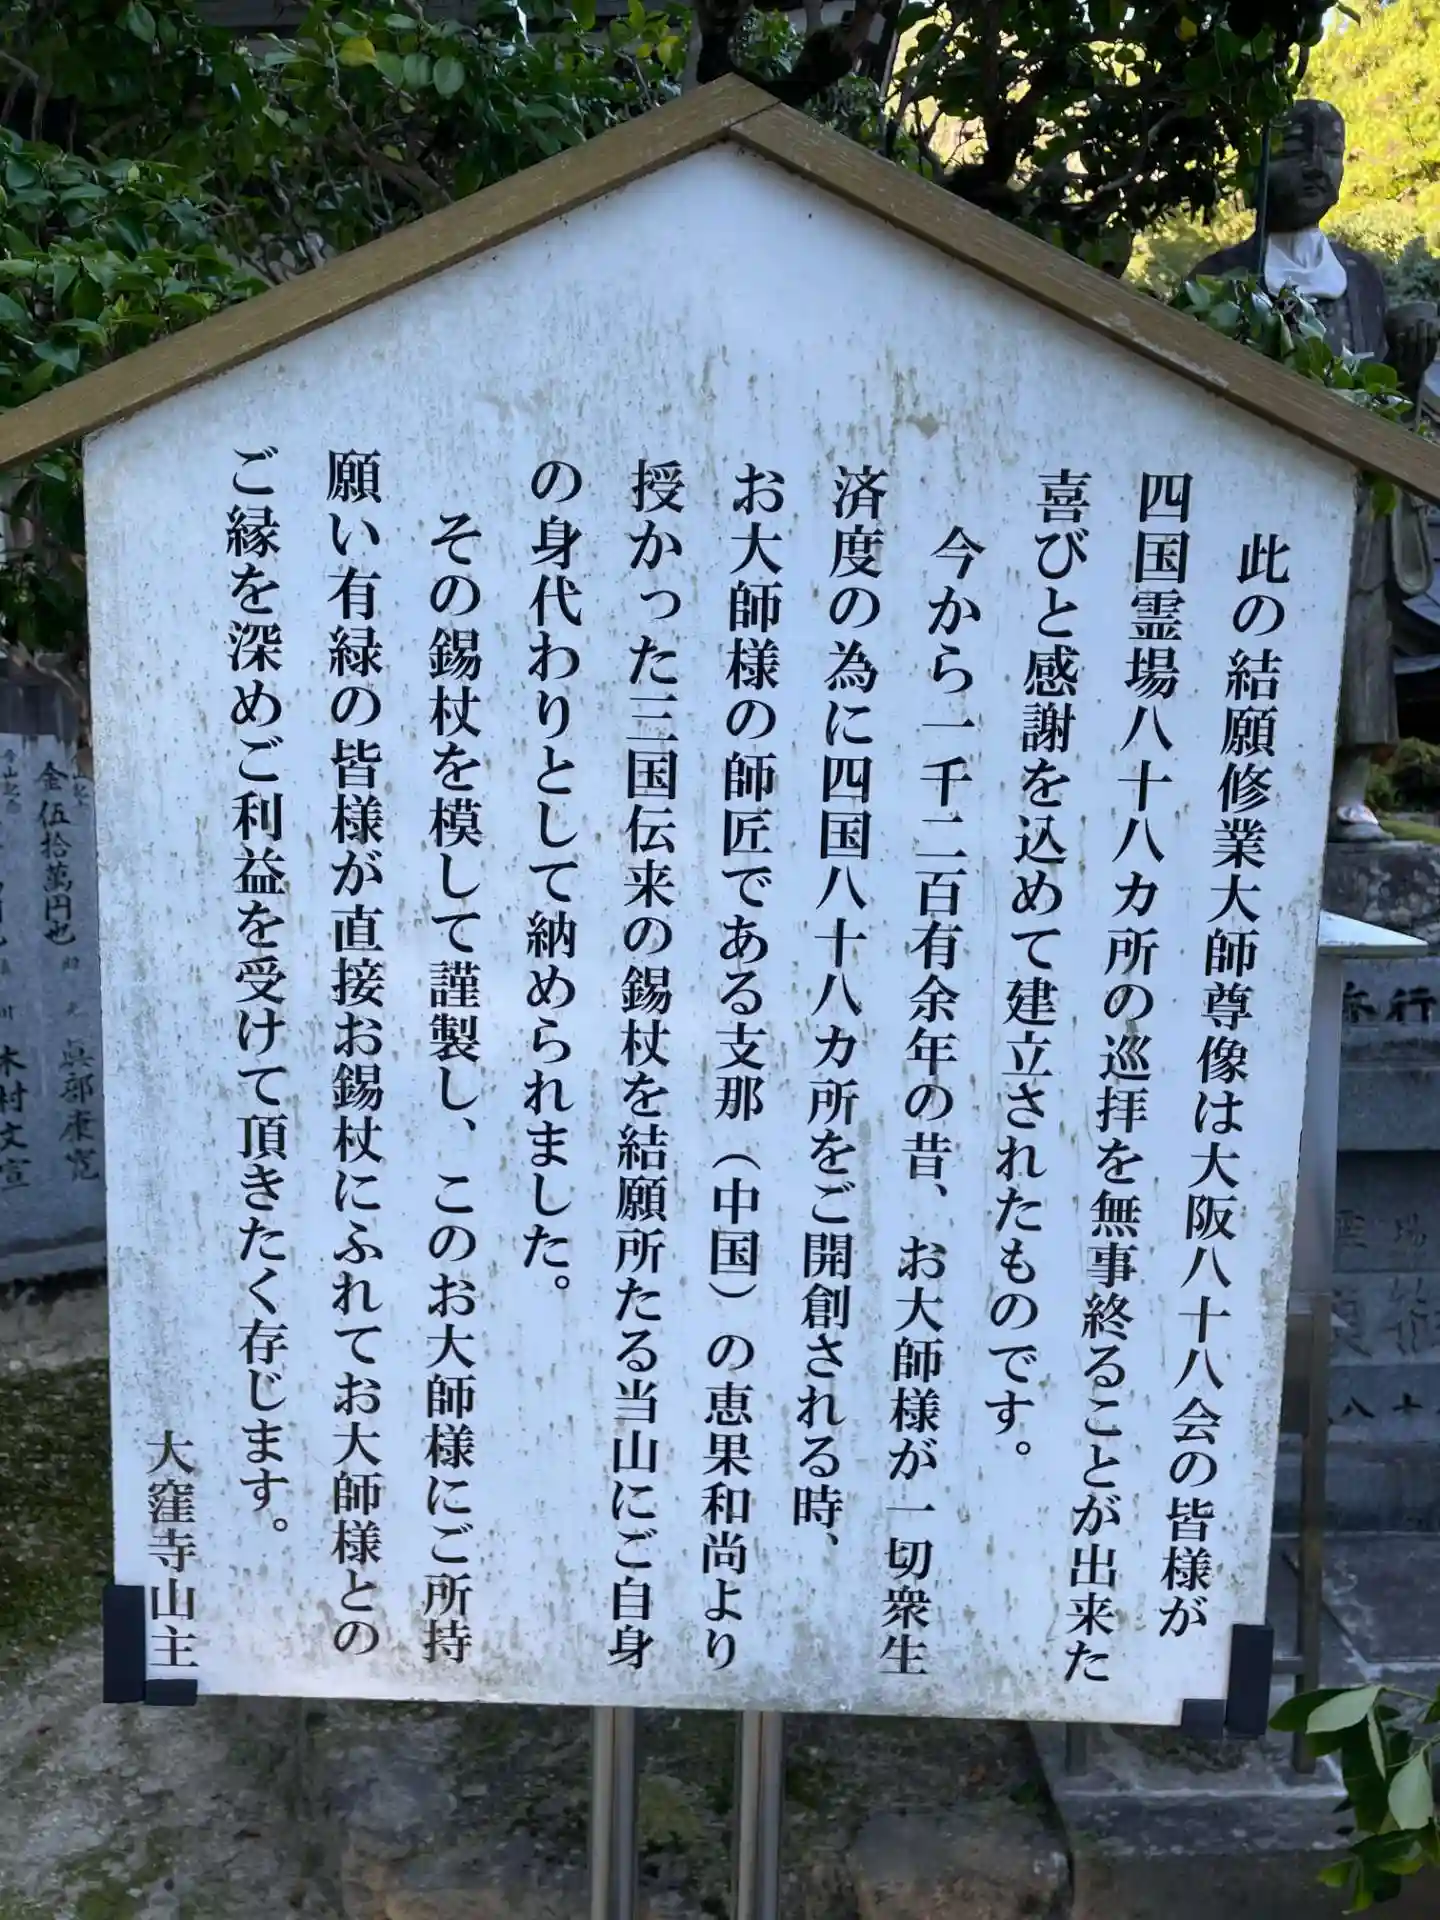 此の結願修業大師尊像は大阪八十八会の皆様が
四国霊場八十八カ所の巡拝を無事終ることが出来た
喜びと感謝を込めて建立されたものです。
今から一千二百有余年の昔、お大師様が一切衆生
済度の為に四国八十八カ所をご開創される時、
お大師様の師匠である支那（中国）の恵果和尚より
授かった三国伝来の錫杖を結願所たる当山にご自身
の身代わりとして納められました。
その錫杖を模して謹製し、このお大師様にご所持
願い有緑の皆様が直接お錫杖にふれてお大師様との
ご縁を深めご利益を受けて頂きたく存じます。
大窪寺山主
金伍拾萬円也
木村文宣